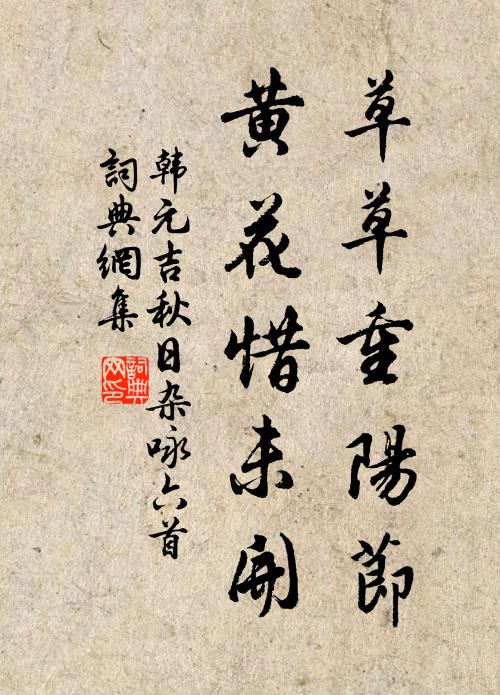 草草重陽節
黄花惜未開
韩元吉秋日杂咏六首
詞典網集
詞典网印